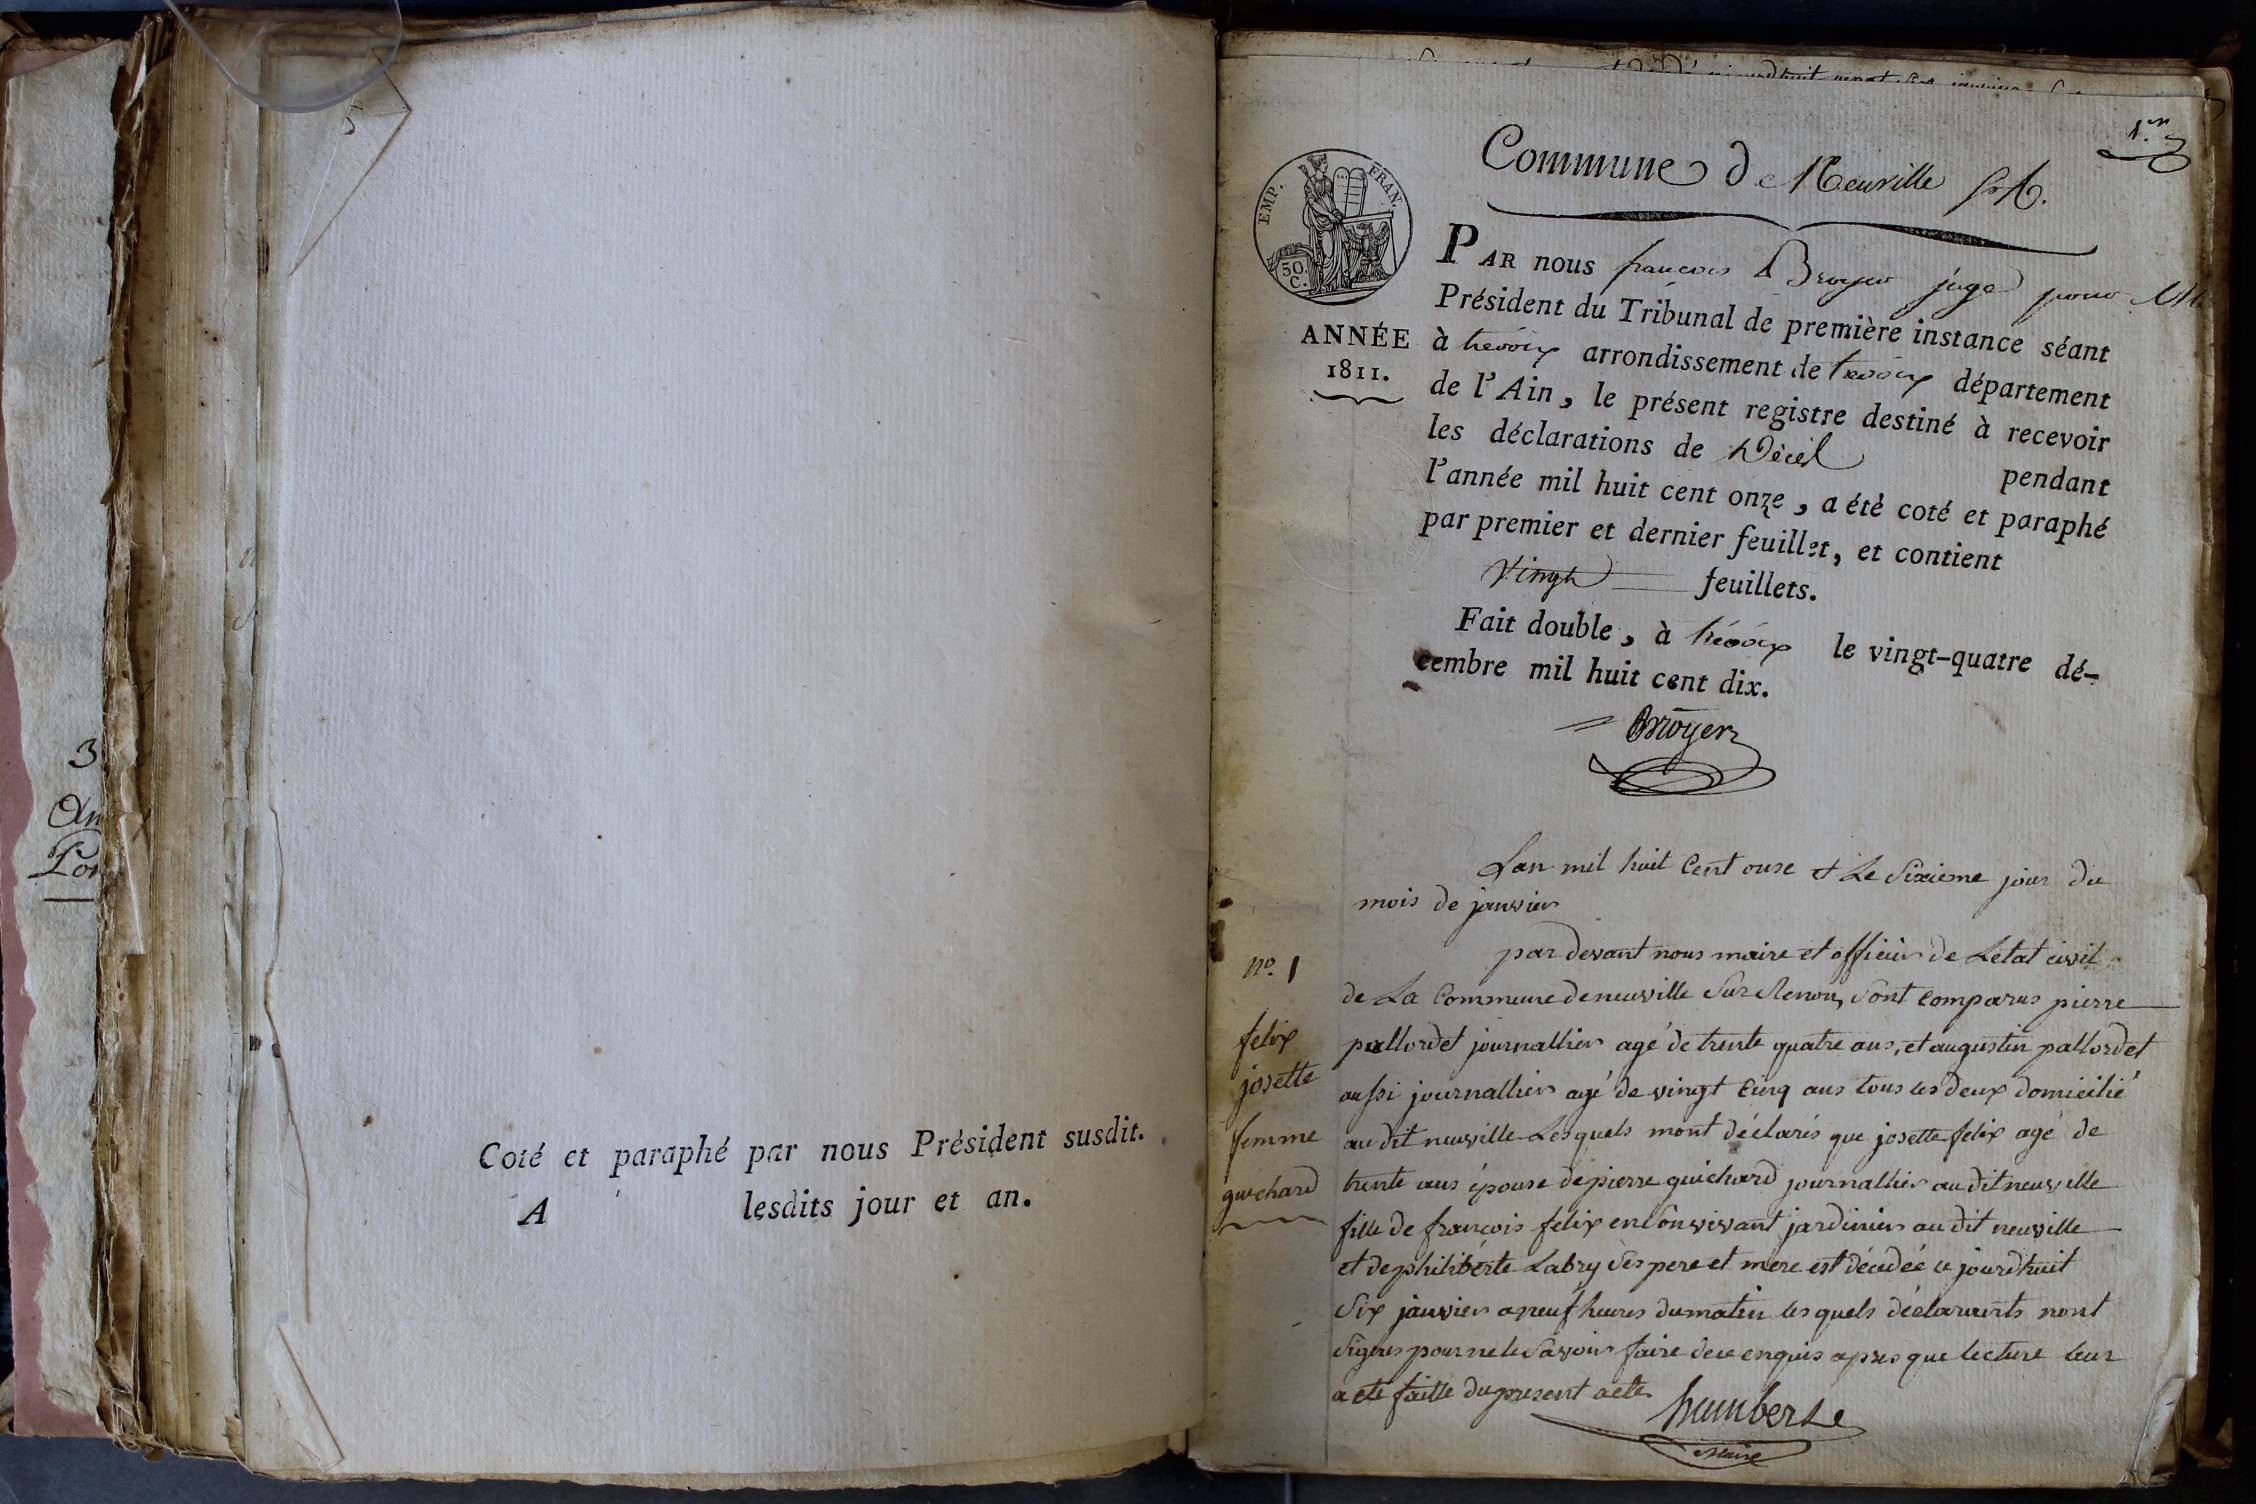 3
An
Coté et paraphé par nous Président susdit.
A lesdits jour et an.
1.er
Commune de Neuville s/R.
EMP. FRAN.
50.
C.
ANNÉE
1811.
PAR nous françois Broyer juge pour Mr le
Président du Tribunal de première instance séant
à trévoux arrondissement de trévoux département
de l'Ain, le présent registre destiné à recevoir
les déclarations de Décès pendant
l'année mil huit cent onze, a été coté et paraphé
par premier et dernier feuillet, et contient
Vingt feuillets.
Fait double, à trévoux le vingt-quatre dé-
cembre mil huit cent dix.
Broyer
Lan mil huit Cent onse et Le Sixieme jour du
mois de janvier
par devant nous maire et officier de Letat civil
de La Commune de neuville Sur Renon, Sont Comparus pierre
pallordet journallier agé de trente quatre ans, et augustin pallordet
aussi journallier agé de vingt Cinq ans tous les deux domicilié
au dit neuville Lesquels mont déclarés que josette felix agé de
trente ans épouse de pierre guichard journallier au dit neuville
fille de françois felix en Son vivant jardinier au dit neuville
et de philiberte Labry Ses pere et mere est décédée ce jourdhuit
Six janvier a neuf heures du matin les quels déclarants nont
Signés pour ne le Savoir faire de ce enquis apres que lecture leur
a eté faitte du present acte
humbert
Maire
no. 1
felix
josette
femme
guichard